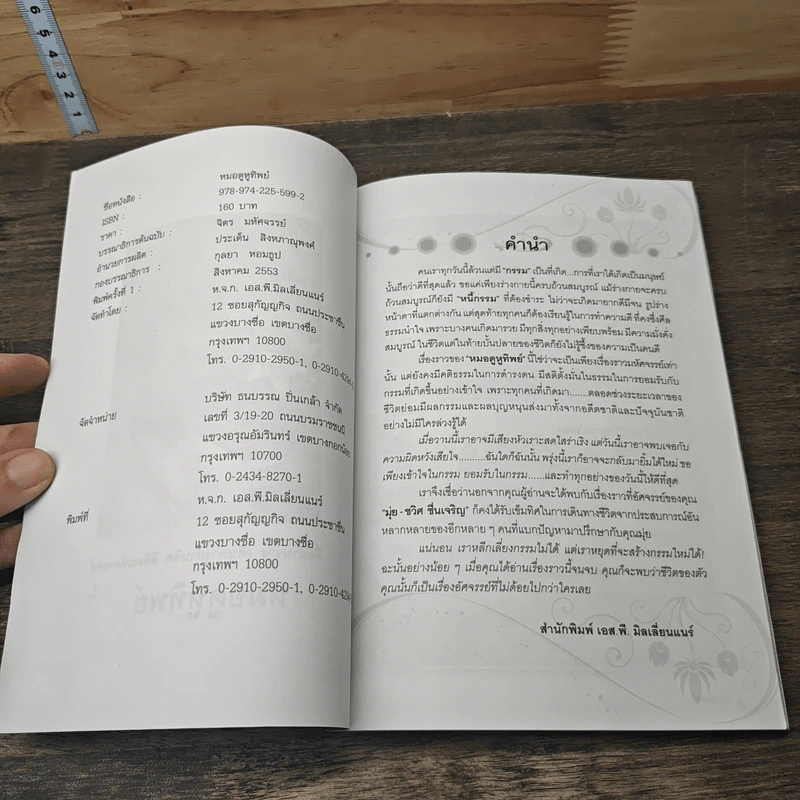 6 5 4 3 2 1
ชื่อหนังสือ : หมอดูหูทิพย์
ISBN : 978-974-225-599-2
ราคา : 160 บาท
บรรณาธิการต้นฉบับ : จิตร มหัศจรรย์
อำนวยการผลิต : ประเด็น สิงหภาณุพงศ์
กองบรรณาธิการ : กุลยา หอมธูป
พิมพ์ครั้งที่ 1 : สิงหาคม 2553
จัดทำโดย : ห.จ.ก. เอส.พี.มิลเลี่ยนแนร์
12 ซอยสุกัญญกิจ ถนนประชาชื่น
แขวงบางซื่อ เขตบางซื่อ
กรุงเทพฯ 10800
โทร. 0-2910-2950-1, 0-2910-4294
จัดจำหน่าย บริษัท ธนบรรณ ปิ่นเกล้า จำกัด
เลขที่ 3/19-20 ถนนบรมราชชนนี
แขวงอรุณอัมรินทร์ เขตบางกอกน้อย
กรุงเทพฯ 10700
โทร. 0-2434-8270-1
พิมพ์ที่ ห.จ.ก. เอส.พี.มิลเลี่ยนแนร์
12 ซอยสุกัญญกิจ ถนนประชาชื่น
แขวงบางซื่อ เขตบางซื่อ
กรุงเทพฯ 10800
โทร. 0-2910-2950-1, 0-2910-4294
คำนำ
คนเราทุกวันนี้ล้วนแต่มี "กรรม" เป็นที่เกิด...การที่เราได้เกิดเป็นมนุษย์
นั้นถือว่าดีที่สุดแล้ว ขอแค่เพียงร่างกายนี้ครบถ้วนสมบูรณ์ แม้ร่างกายจะครบ
ถ้วนสมบูรณ์ก็ยังมี "หนี้กรรม" ที่ต้องชำระ ไม่ว่าจะเกิดมายากดีมีจน รูปร่าง
หน้าตาที่แตกต่างกัน แต่สุดท้ายทุกคนก็ต้องเรียนรู้ในการทำความดี ที่คงซึ่งศีล
ธรรมนำใจ เพราะบางคนเกิดมารวย มีทุกสิ่งทุกอย่างเพียบพร้อม มีความมั่งคั่ง
สมบูรณ์ ในชีวิตแต่ในท้ายบั้นปลายของชีวิตก็ยังไม่รู้ซึ้งของความเป็นคนดี
เรื่องราวของ "หมอดูหูทิพย์" นี้ใช่ว่าจะเป็นเพียงเรื่องราวมหัศจรรย์เท่า
นั้น แต่ยังคงมีคติธรรมในการดำรงตน มีสติตั้งมั่นในธรรมในการยอมรับกับ
กรรมที่เกิดขึ้นอย่างเข้าใจ เพราะทุกคนที่เกิดมา.......ตลอดช่วงระยะเวลาของ
ชีวิตย่อมมีผลกรรมและผลบุญหนุนส่งมาทั้งจากอดีตชาติและปัจจุบันชาติ
อย่างไม่มีใครล่วงรู้ได้
เมื่อวานนี้เราอาจมีเสียงหัวเราะสดใสร่าเริง แต่วันนี้เราอาจพบเจอกับ
ความผิดหวังเสียใจ..........ฉันใดก็ฉันนั้น พรุ่งนี้เราก็อาจจะกลับมายิ้มได้ใหม่ ขอ
เพียงเข้าใจในกรรม ยอมรับในกรรม......และทำทุกอย่างของวันนี้ให้ดีที่สุด
เราจึงเชื่อว่านอกจากคุณผู้อ่านจะได้พบกับเรื่องราวที่อัศจรรย์ของคุณ
"มุ่ย - ชวิศ ชื่นเจริญ" ก็คงได้รับเข็มทิศในการเดินทางชีวิตจากประสบการณ์อัน
หลากหลายของอีกหลาย ๆ คนที่แบกปัญหามาปรึกษากับคุณมุ่ย
แน่นอน เราหลีกเลี่ยงกรรมไม่ได้ แต่เราหยุดที่จะสร้างกรรมใหม่ได้!
ฉะนั้นอย่างน้อย ๆ เมื่อคุณได้อ่านเรื่องราวนี้จนจบ คุณก็จะพบว่าชีวิตของตัว
คุณนั้นก็เป็นเรื่องอัศจรรย์ที่ไม่ด้อยไปกว่าใครเลย
สำนักพิมพ์ เอส.พี. มิลเลี่ยนแนร์